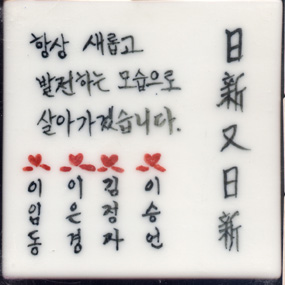 항상 새롭고
발전하는 모습으로
살아가겠습니다.
이임동
이은경
김정자
이승언
日新又日新